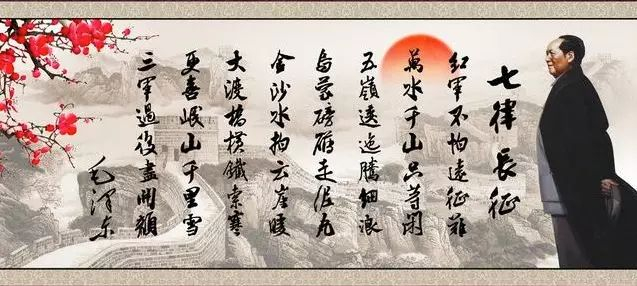 七律長征
红军不怕遠征難
萬水千山只等闲
五嶺逶迤騰細浪
烏蒙磅礴走泥丸
金沙水拍云崖暖
大渡橋橫鐵索寒
更喜岷山千里雪
三军過後盡開顏
毛澤東